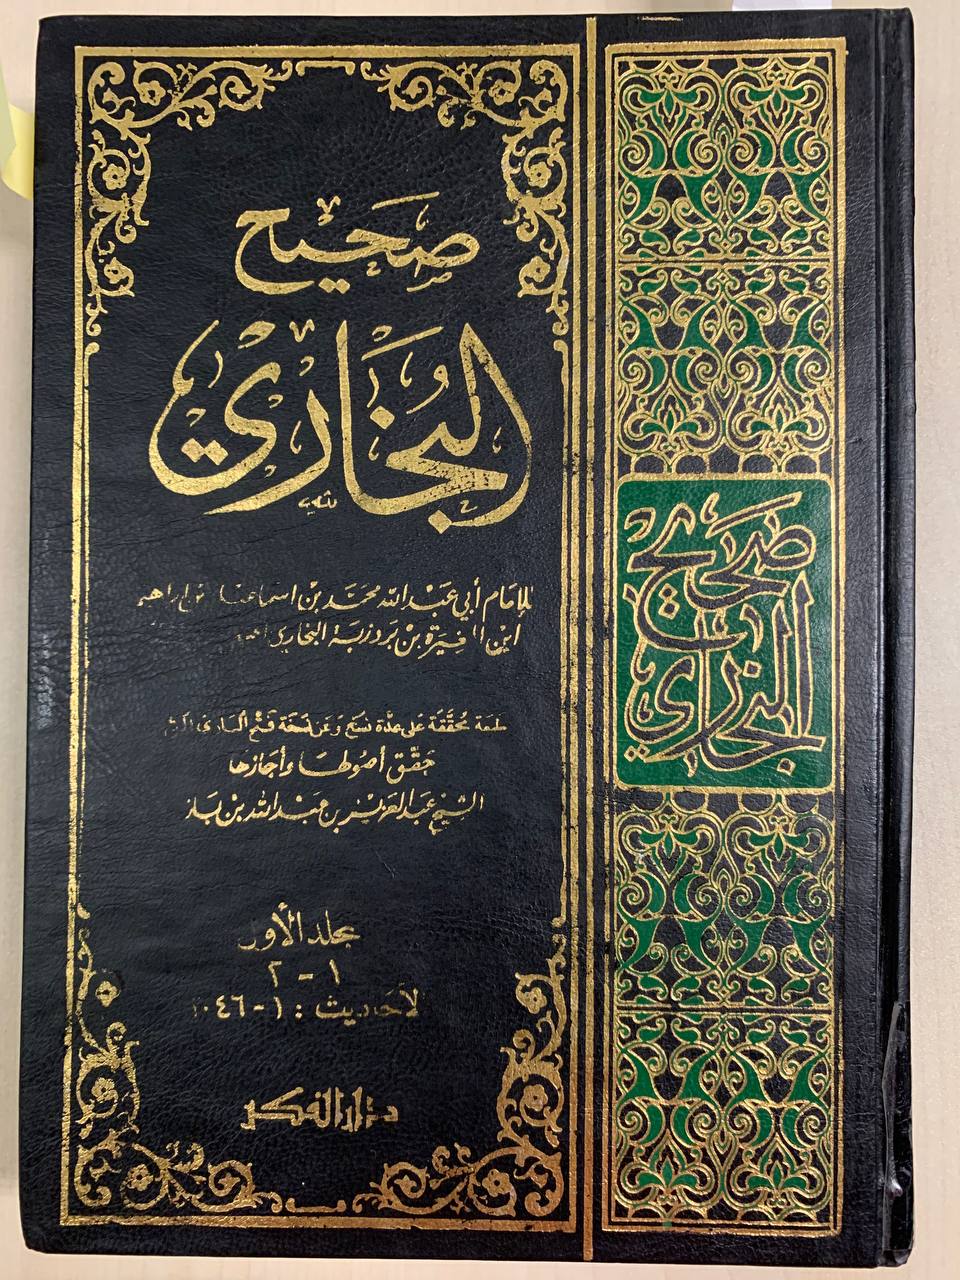 صَحِيح
البُخَاري
للإمَام أبي عبْد الله محمَّد بن اسماعيل بن ابراهيم
ابن المغيرة بن بردزبة البخاري
طبعة محُقّقة على عدّة نسَخ وعن نسخة فتح الباري
حَقّق أصُولها وأجَازها
الشيخ عبد العزيز بن عبْد الله بن باز
مجلد الأول
١ - ٢
الأحَاديث : ١ - ١٠٤٦
دار الفكر
صَحِيح
البخاري